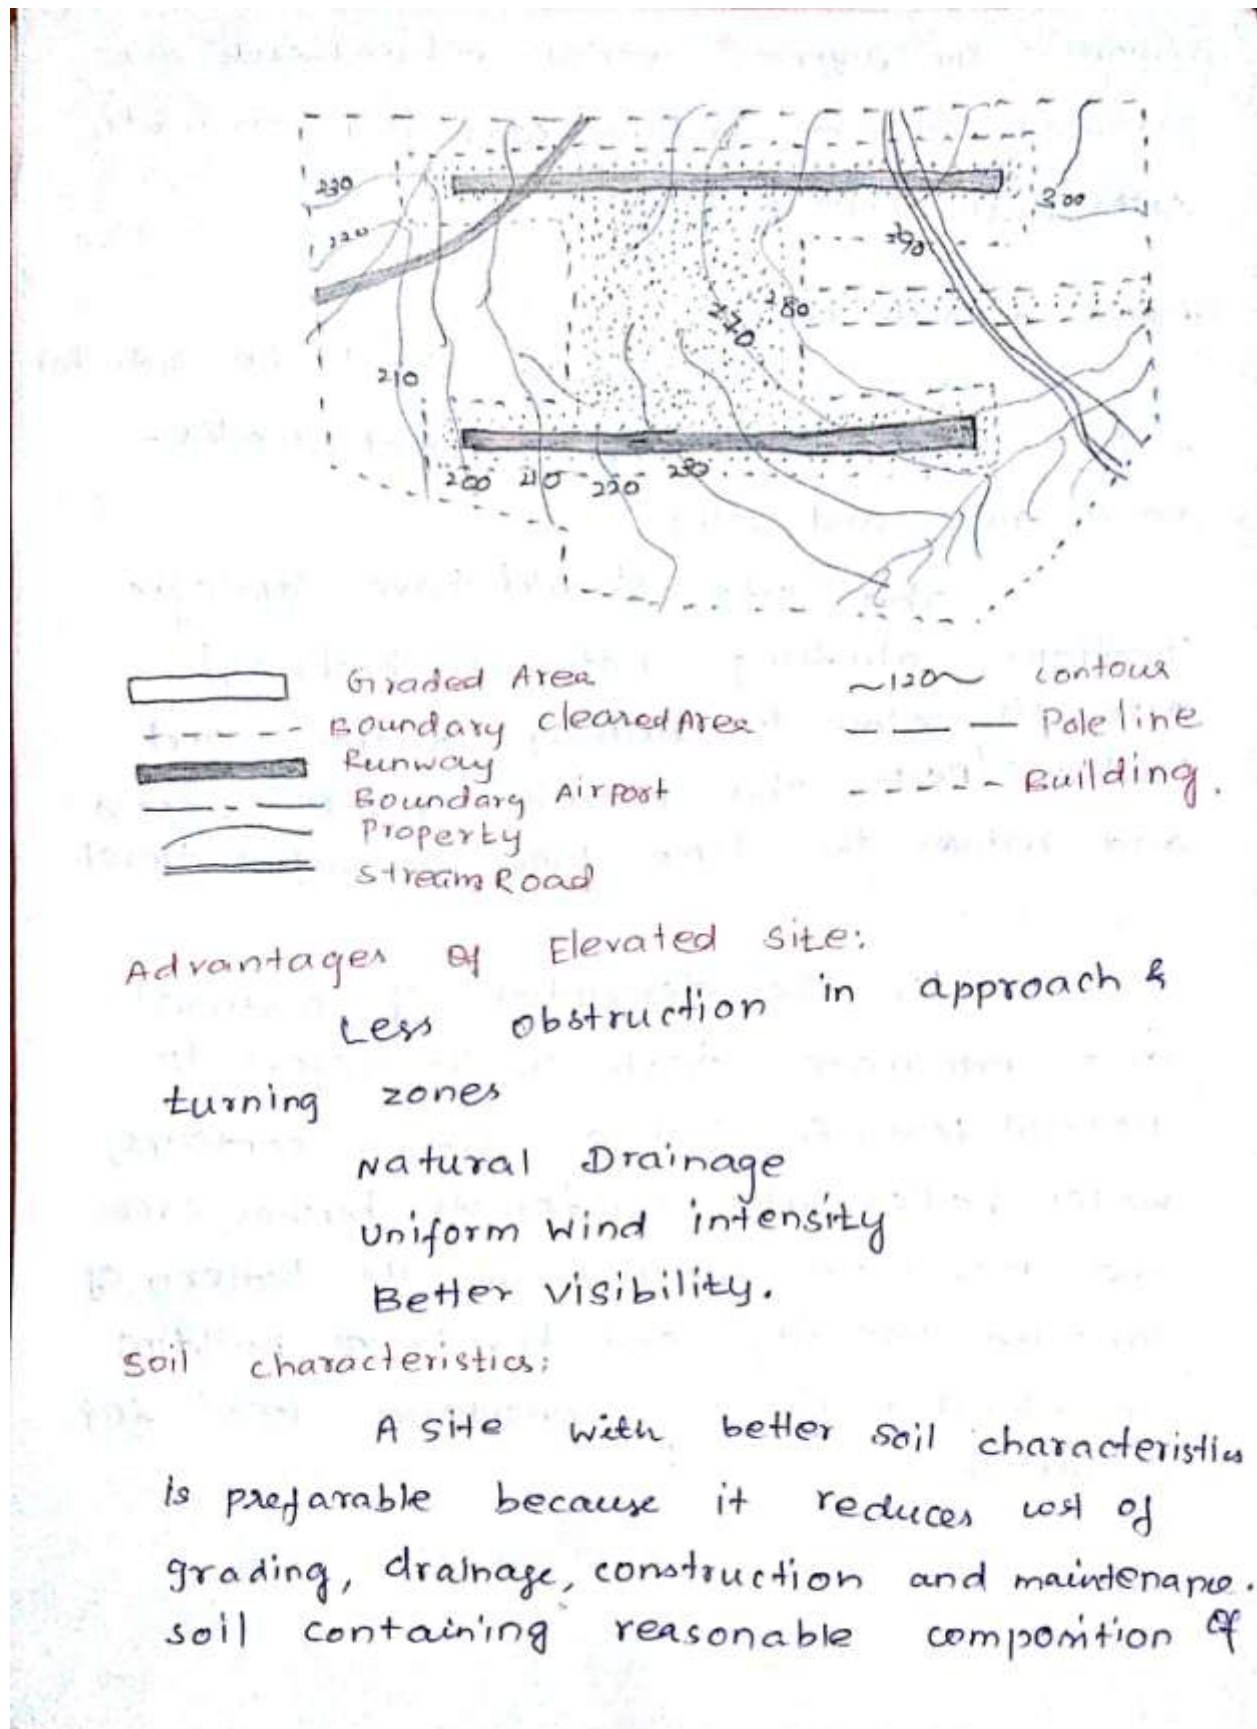 230
300
220
290
280
270
210
200 210 220 230
Graded Area ~120~ contour
Boundary cleared Area Pole line
Runway
Boundary Airport Building.
Property
Stream Road
Advantages of Elevated site:
Less obstruction in approach &
turning zones
Natural Drainage
Uniform wind intensity
Better visibility.
Soil characteristics:
A site with better soil characteristics
is prefarable because it reduces cost of
grading, drainage, construction and maintenance.
soil containing reasonable composition of